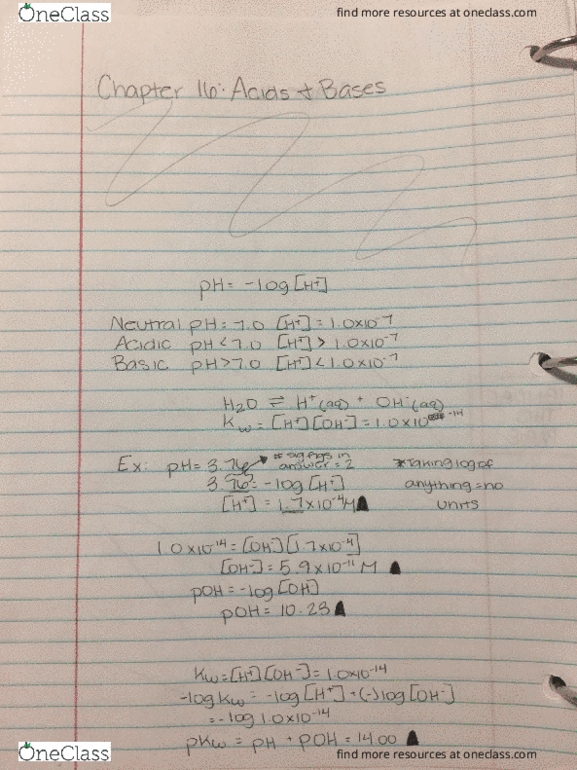 OneClass
find more resources at oneclass.com
Chapter 16: Acids & Bases
pH = -log [H⁺]
Neutral pH = 7.0 [H⁺] = 1.0x10⁻⁷
Acidic pH < 7.0 [H⁺] > 1.0x10⁻⁷
Basic pH > 7.0 [H⁺] < 1.0x10⁻⁷
H₂O ⇌ H⁺(aq) + OH⁻(aq)
Kw = [H⁺][OH⁻] = 1.0x10⁻¹⁴
Ex: pH = 3.76 → # sig figs in answer = 2 *taking log of
3.76 = -log [H⁺] anything = no
[H⁺] = 1.7x10⁻⁴M units
1.0x10⁻¹⁴ = [OH⁻][1.7x10⁻⁴]
[OH⁻] = 5.9x10⁻¹¹ M
pOH = -log[OH⁻]
pOH = 10.23
Kw = [H⁺][OH⁻] = 1.0x10⁻¹⁴
-log Kw = -log [H⁺] + (-)log [OH⁻]
= -log 1.0x10⁻¹⁴
pKw = pH + pOH = 14.00
OneClass
find more resources at oneclass.com